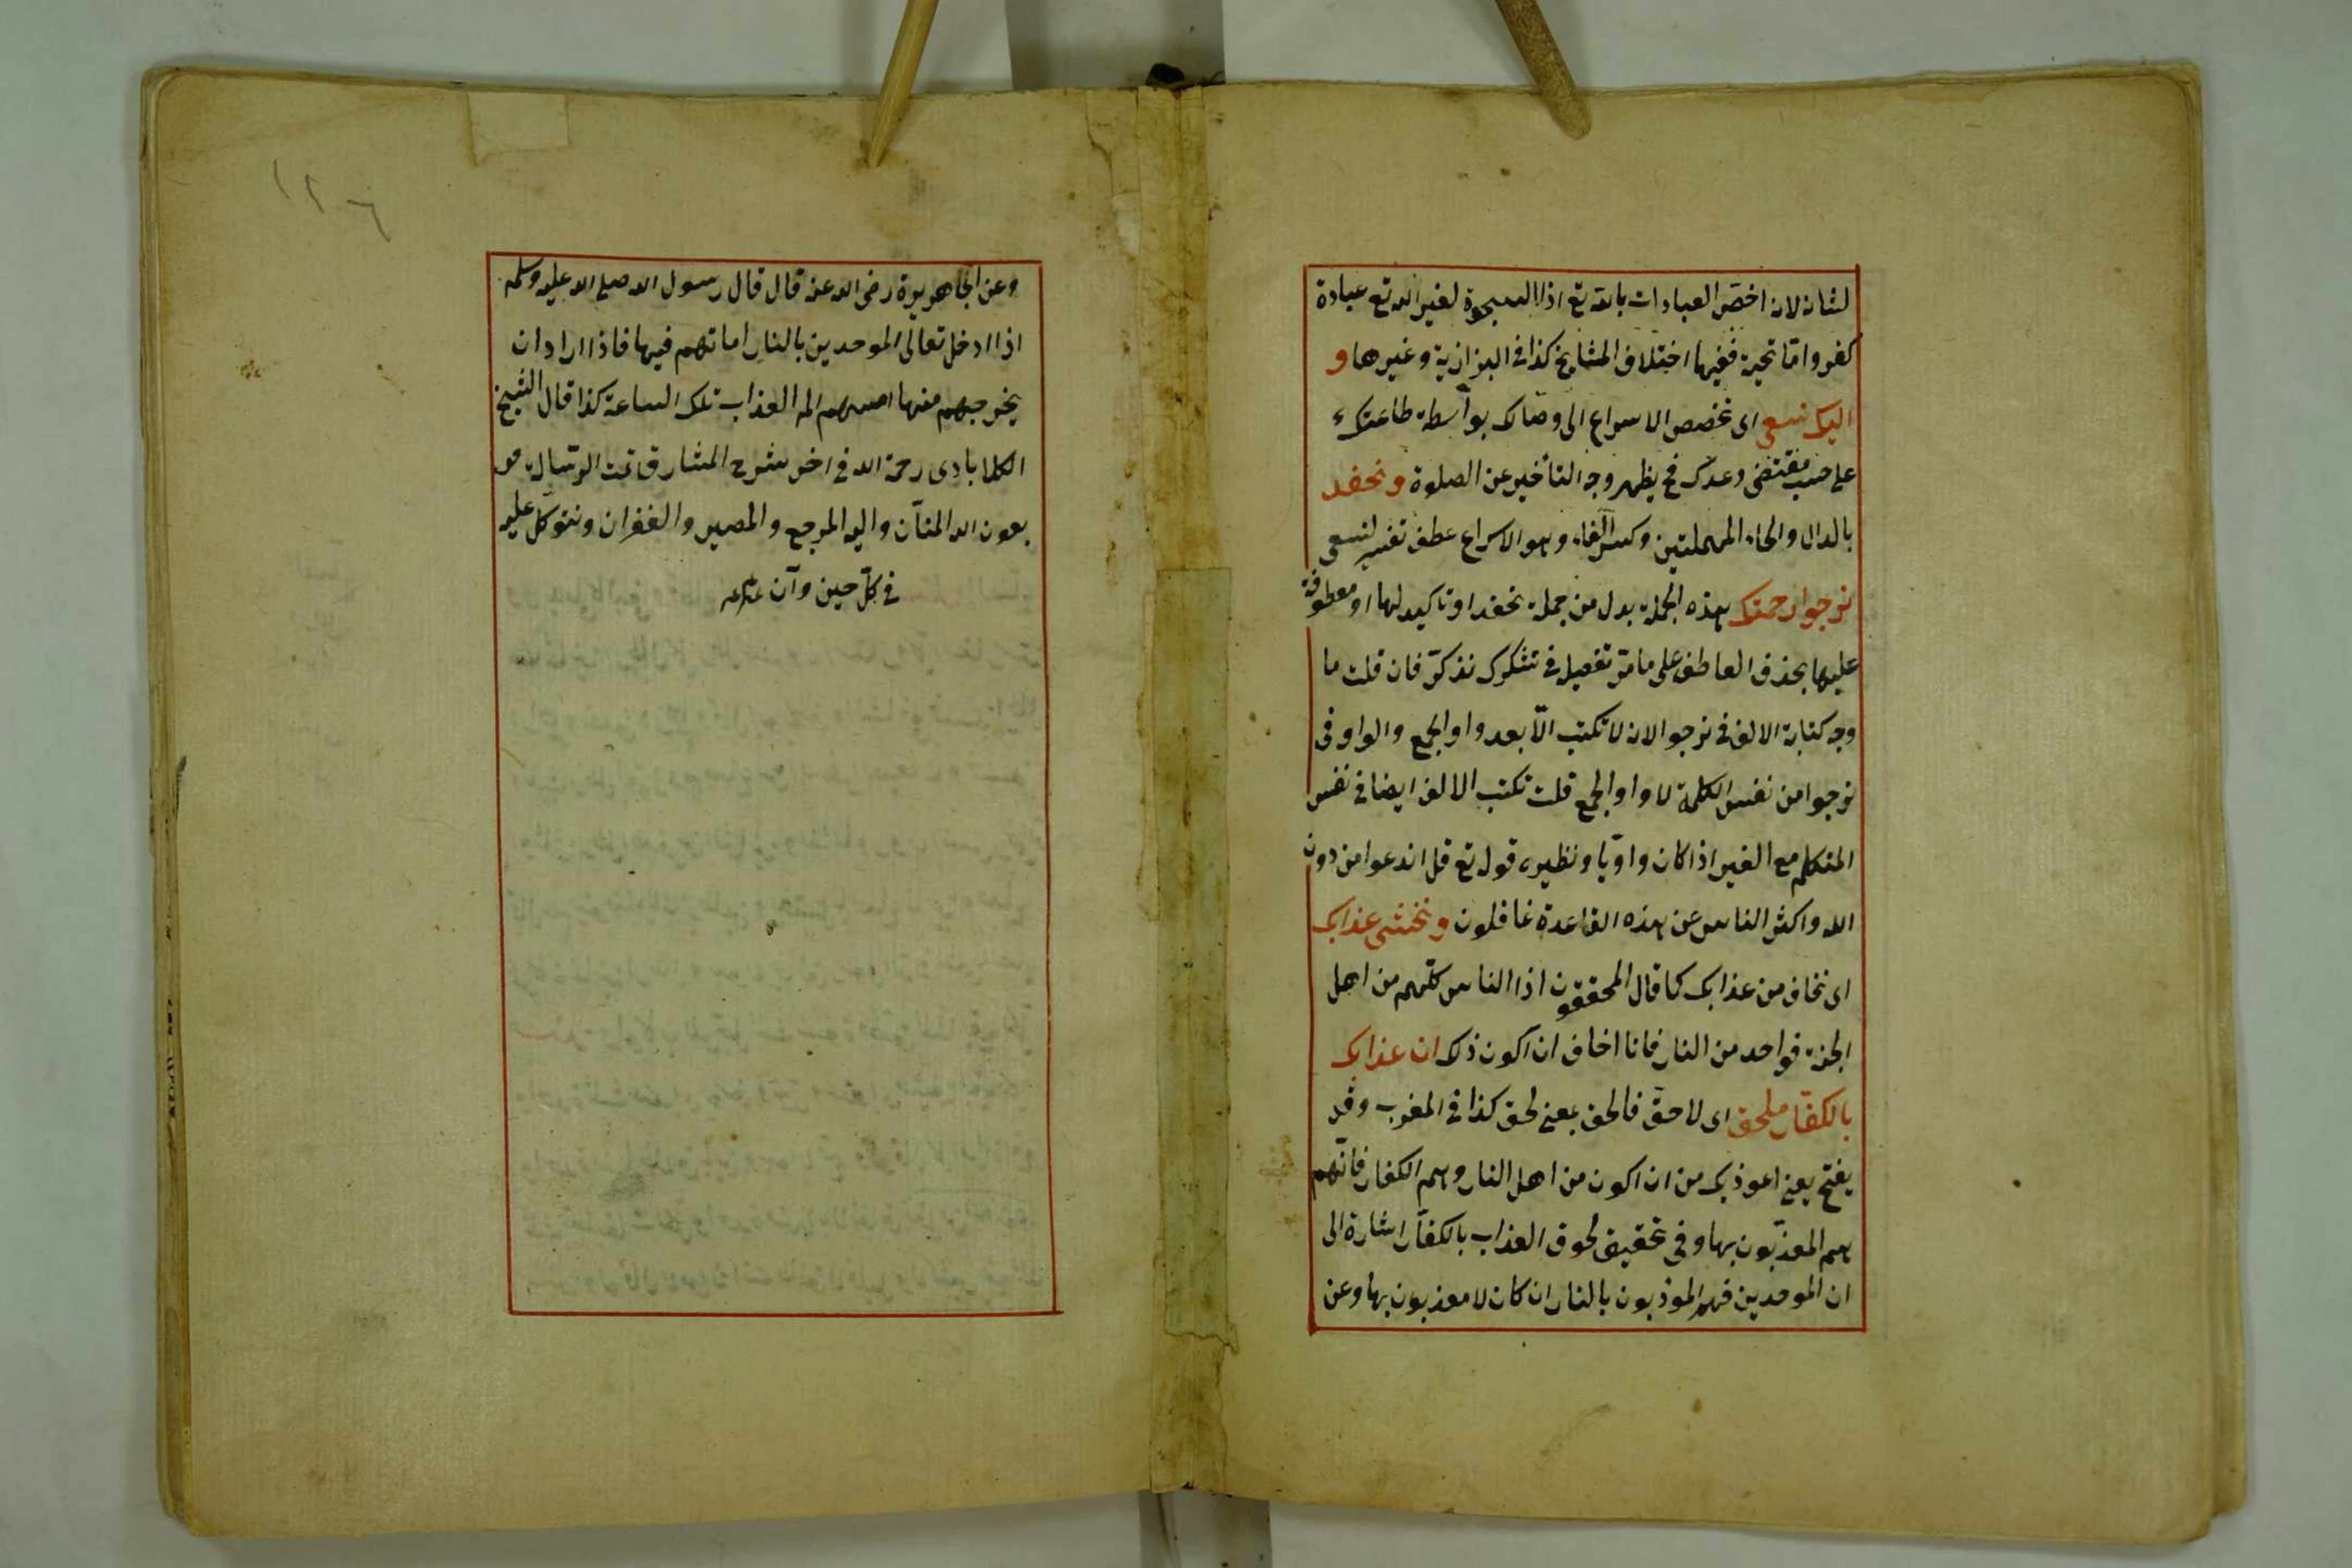 لشانه لان اخص العبادات بالله تع اذ السجدة لغير الله تع عبادة
كفر واما تحية ففيها اختلاف المشايخ كذا في البزازية وغيرها و
اليك نسعى اى نخصص الاسراع الى وصالك بواسطة طاعتك
على حسب مقتضى وعدك فح يظهر وجه التأخير عن الصلوة ونحفد
بالدال والحاء المهملتين وكسر الفاء وهو الاسراع عطف تفسير لنسعى
نرجوا رحمتك هذه الجملة بدل من جملة نحفد او تاكيد لها او معطوفة
عليها بحذف العاطف على ما مر تفصيل في نشكرك نذكر فان قلت ما
وجه كتابة الالف في نرجو الان لا تكتب الا بعد واو الجمع والواو فى
نرجوا من نفس الكلمة لا واو الجمع قلت تكتب الالف ايضا في نفس
المتكلم مع الغير اذا كان واويا ونظيره قول تع قل اندعوا من دون
الله واكثر الناس عن هذه القاعدة غافلون ونخشى عذابك
اى نخاف من عذابك كما قال المحققون اذا الناس كلهم من اهل
الجنة فواحد من النار فانا اخاف ان اكون ذلك ان عذابك
بالكفار ملحق اى لاحق فالحق بمعنى لحق كذا في المغرب وقد
يفتح يعنى اعوذ بك من ان اكون من اهل النار وهم الكفار فانهم
هم المعذبون بها وفى تحقيق لحوق العذاب بالكفار اشارة الى
ان الموحدين فهم المؤذبون بالنار ان كان لا معذبون بها وعن
١٢٦
وعن ابى هريرة رضى الله عنه قال قال رسول الله صلى الله عليه وسلم
اذا ادخل تعالى الموحدين بالنار اماتهم فيها فاذا اراد ان
يخرجهم منها امسهم الم العذاب تلك الساعة كذا قال الشيخ
الكلابادى رحمة الله في اخر شرح المشارق تمت الرسالة
بعون الله المنان واليه المرجع والمصير والغفران ونتوكل عليه
في كل حين وآن